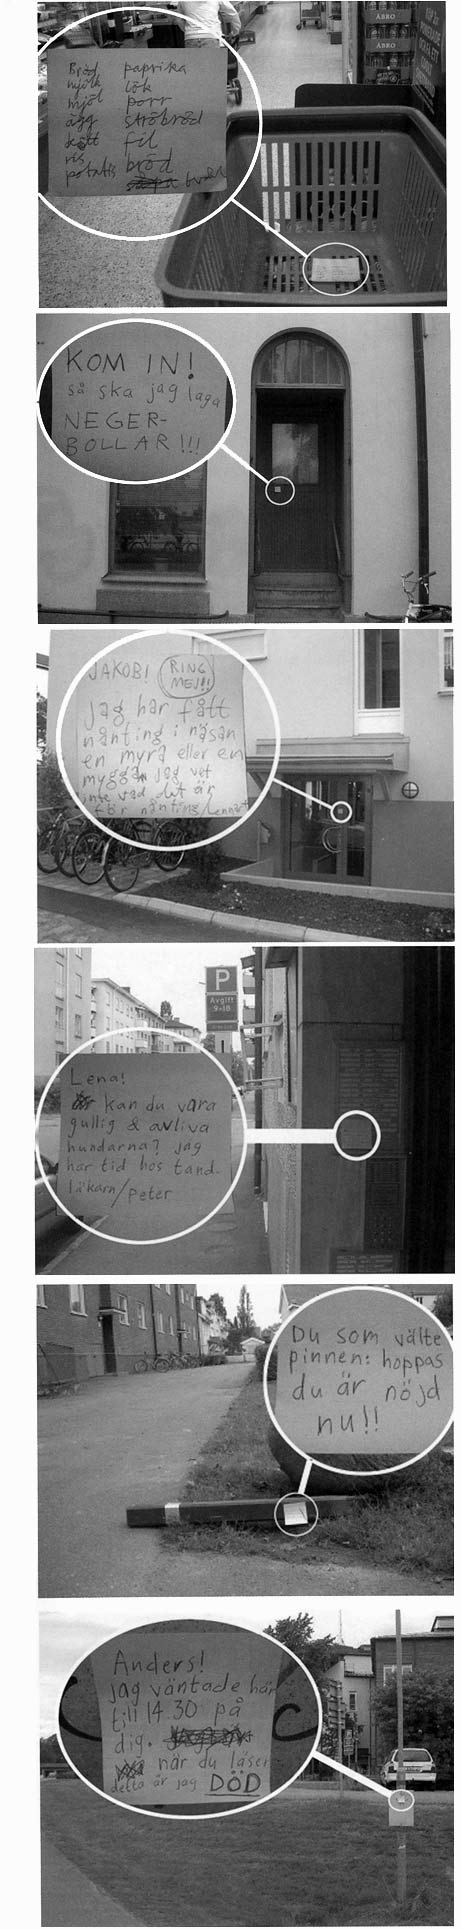 ÅBRO
Bröd paprika
mjölk lök
mjöl porr
ägg ströbröd
kött fil
ris bröd
potatis
KOM IN!
så ska jag laga
NEGER-
BOLLAR!!!
JAKOB! RING
MEJ!!
jag har fått
nånting i näsan
en myra eller en
mygga, jag vet
inte vad det är
för nånting/Lennart
P
Avgift
9-18
Lena!
kan du vara
gullig & avliva
hundarna? jag
har tid hos tand-
läkarn/Peter
Du som välte
pinnen: hoppas
du är nöjd
nu!!
Anders!
jag väntade här
till 14.30 på
dig.
när du läser
detta är jag DÖD